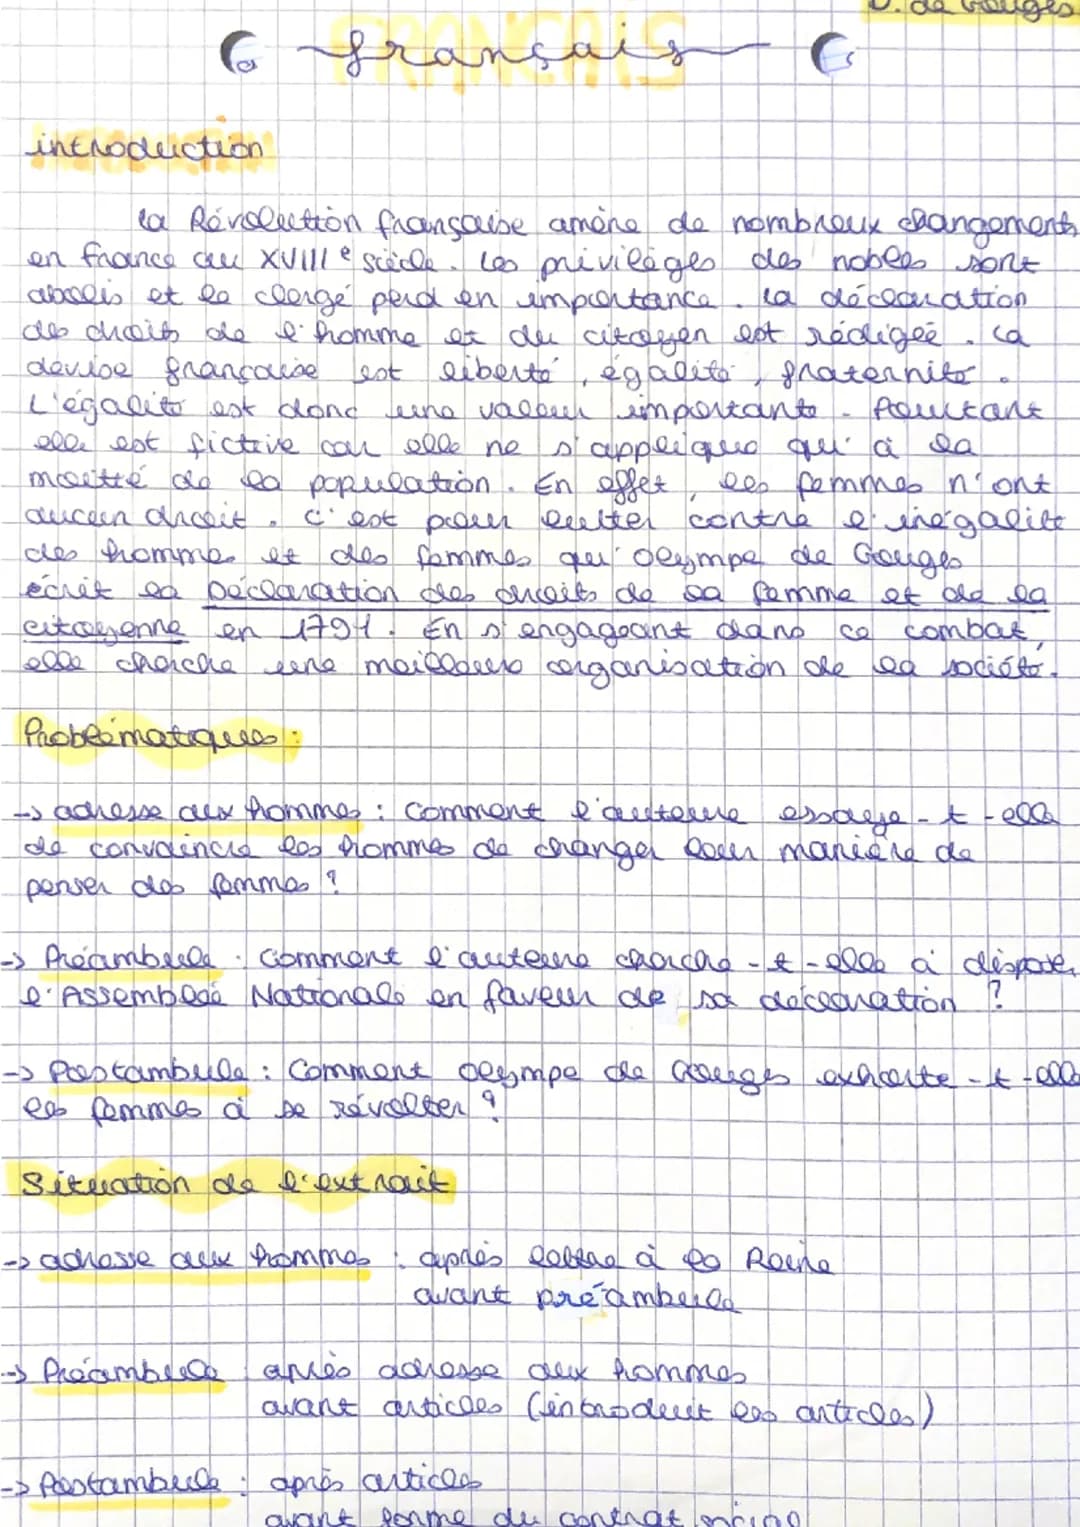 O. de Gouges
français
introduction
la Révolution française amène de nombreux changements
en france au XVIII e siècle. Les privilèges des nobles sont
abolis et le clergé perd en importance. La déclaration
des droits de l'homme et du citoyen est rédigée. La
devise française est liberté, égalité, fraternité.
L'égalité est donc une valeur importante. Pourtant
elle est fictive car elle ne s'applique qu'à la
moitié de la population. En effet, les femmes n'ont
aucun droit. C'est pour lutter contre l'inégalité
des hommes et des femmes qu'Olympe de Gouges
écrit la Déclaration des droits de la femme et de la
citoyenne en 1791. En s'engageant dans ce combat,
elle cherche une meilleure organisation de la société.
Problématiques :
-> adresse aux hommes : Comment l'auteure essaye-t-elle
de convaincre les hommes de changer leur manière de
penser des femmes ?
-> Préambule : Comment l'auteure cherche-t-elle à disposer
l'Assemblée Nationale en faveur de sa déclaration ?
-> Postambule : Comment Olympe de Gouges exhorte-t-elle
les femmes à se révolter ?
Situation de l'extrait
-> adresse aux hommes : après lettre à la Reine
avant préambule
-> Préambule : après adresse aux hommes
avant articles (introduit les articles)
-> Postambule : après articles
avant forme du contrat social